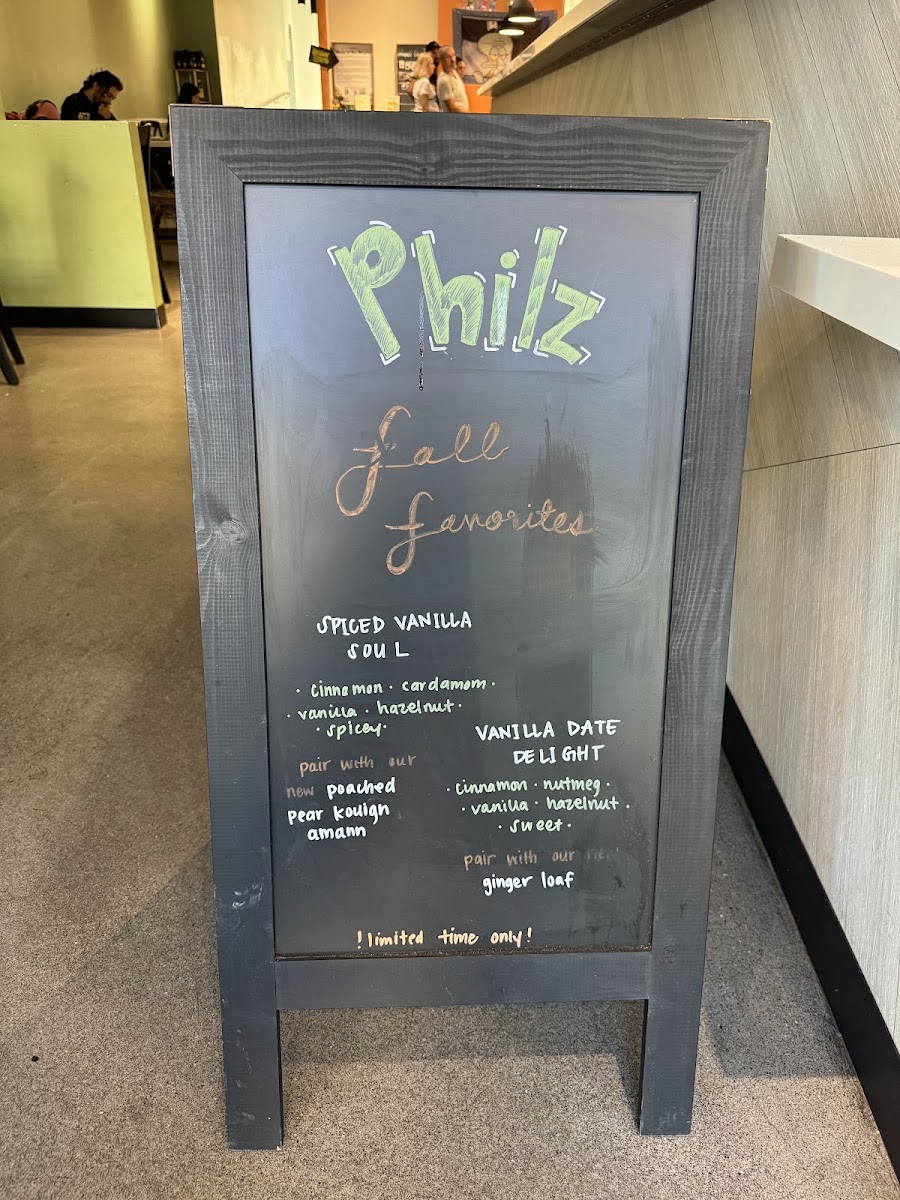 Philz
fall
favorites
SPICED VANILLA
SOUL
· cinnamon · cardamom ·
· vanilla · hazelnut ·
· spicey ·
pair with our
new poached
pear kouign
amann
VANILLA DATE
DELIGHT
· cinnamon · nutmeg ·
· vanilla · hazelnut ·
· sweet ·
pair with our
ginger loaf
!limited time only!